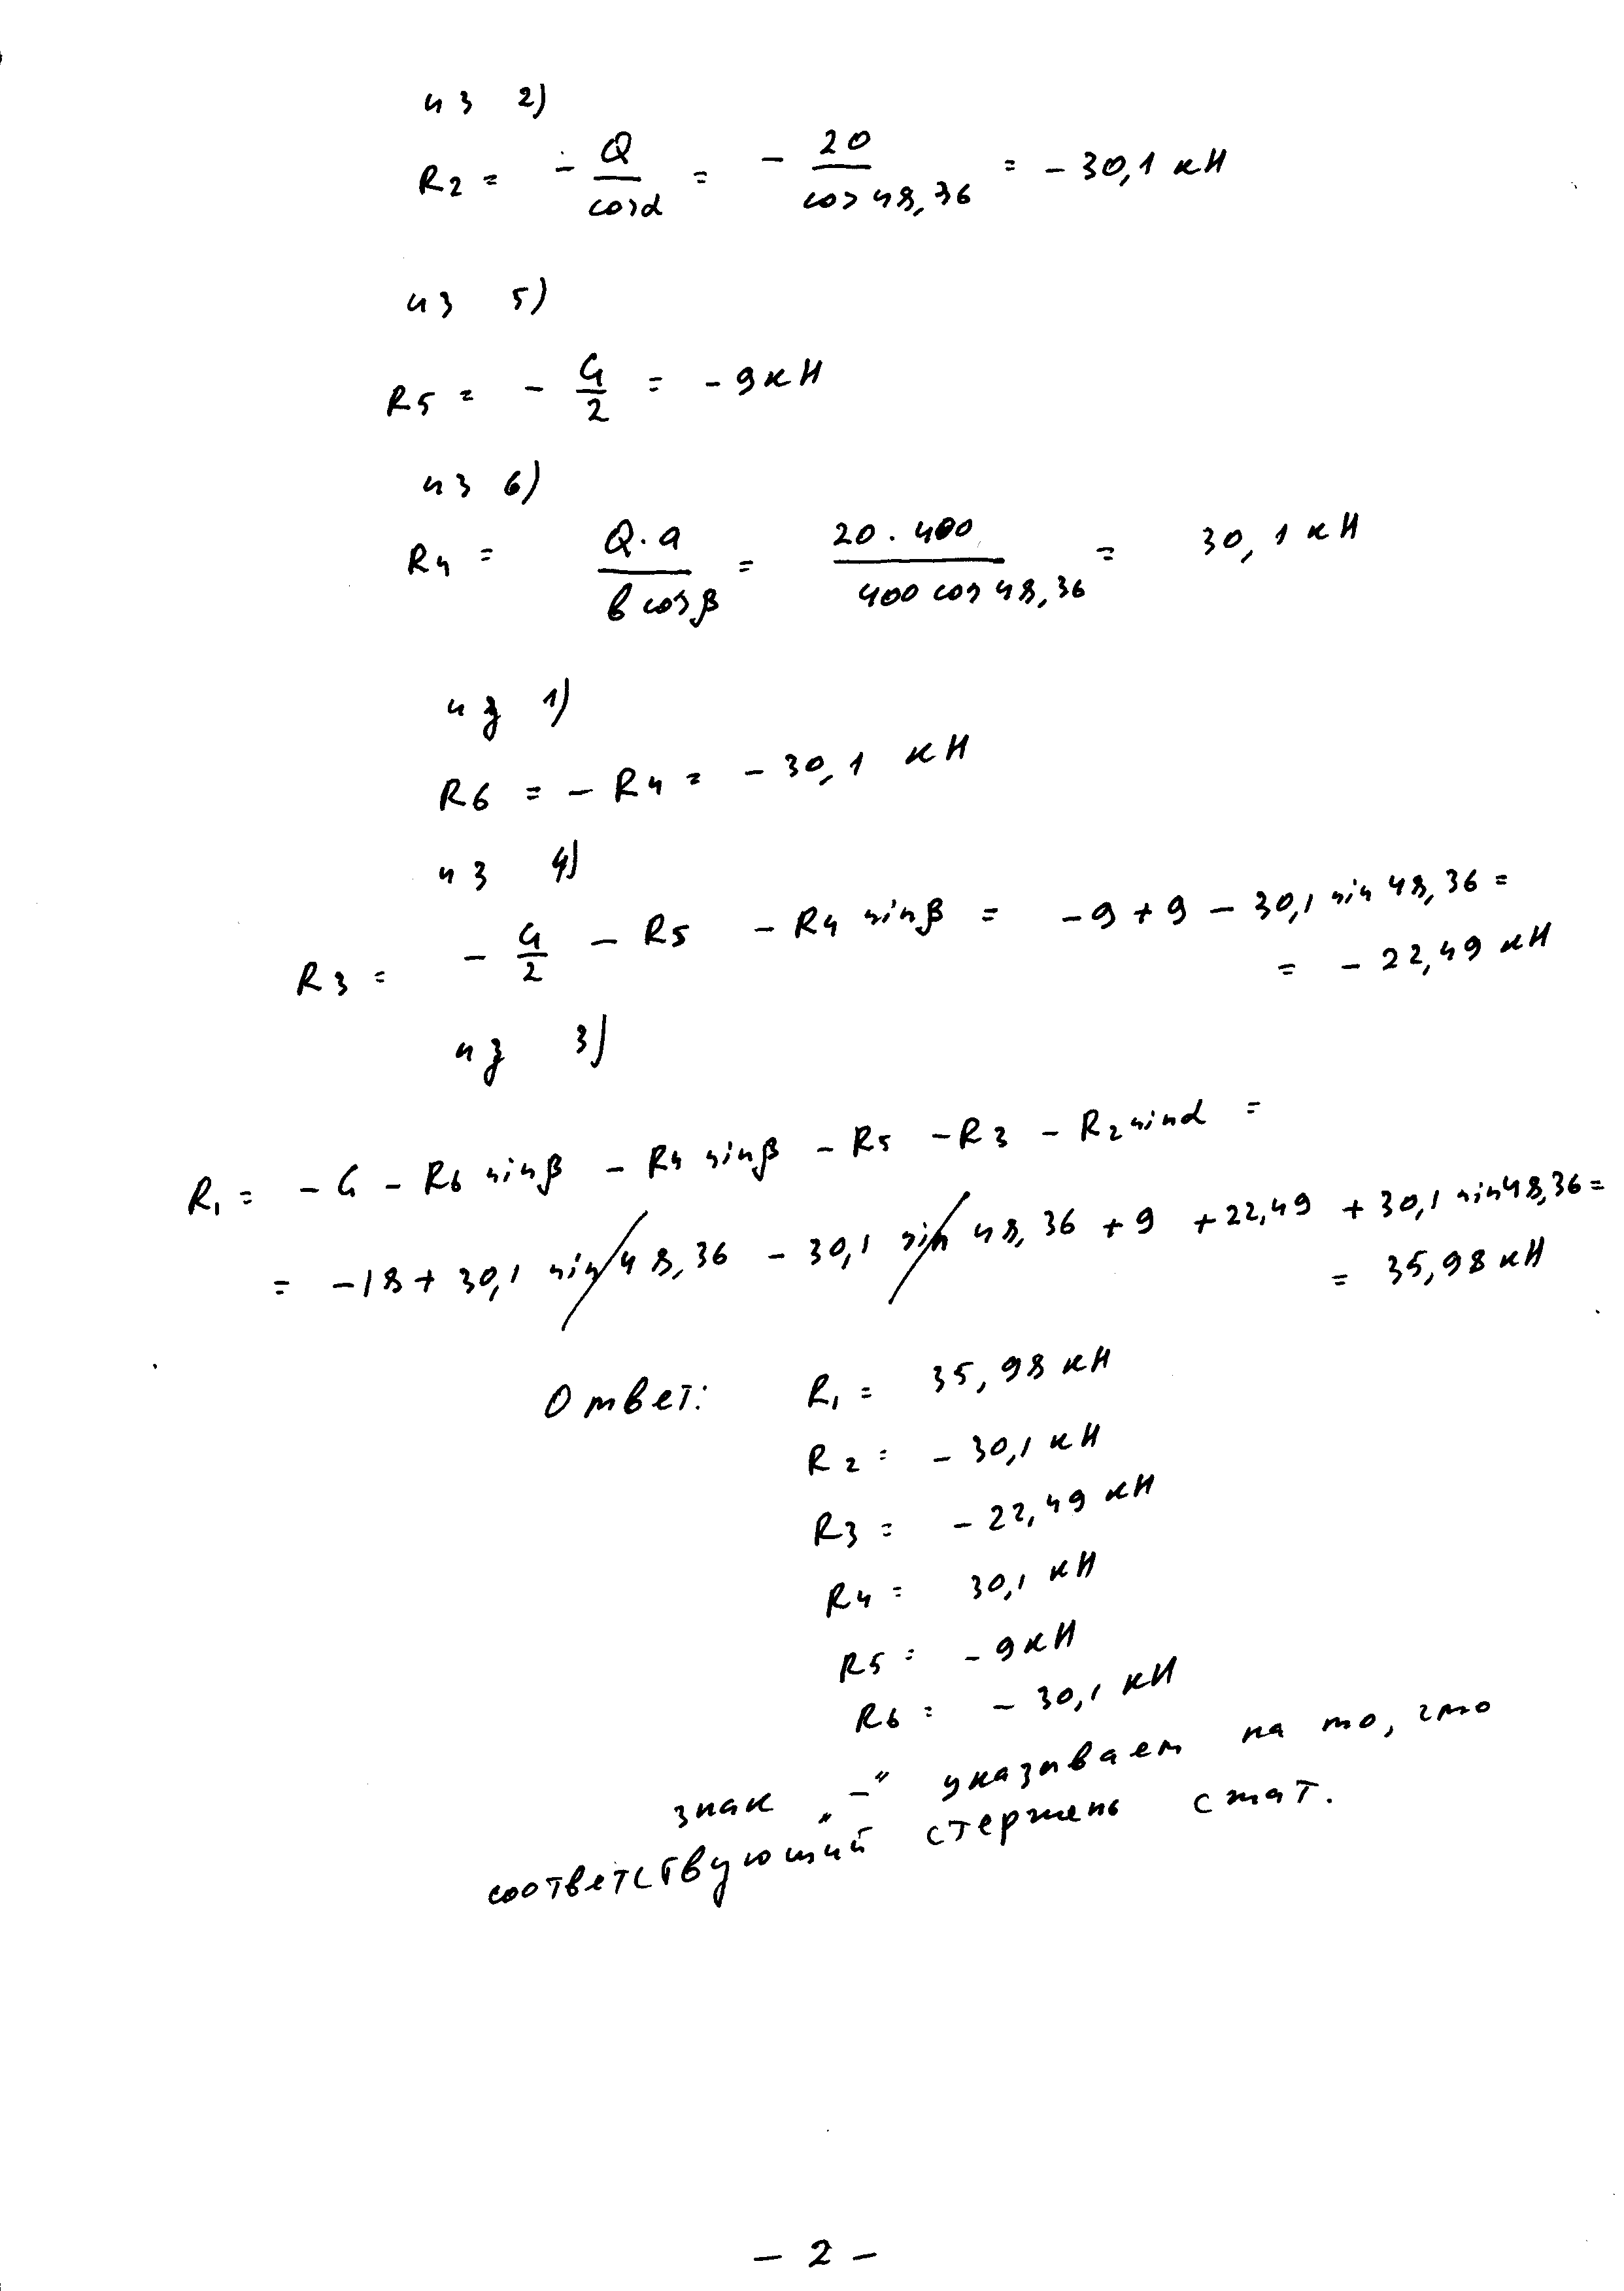 из 2)
R2 = - Q/cosα = - 20/cos 48,36 = - 30,1 кН
из 5)
R5 = - G/2 = - 9 кН
из 6)
R4 = Q·a/b cosβ = 20·400/400 cos 48,36 = 30,1 кН
из 1)
R6 = - R4 = - 30,1 кН
из 4)
R3 = - G/2 - R5 - R4 sinβ = - 9 + 9 - 30,1 sin 48,36 =
= - 22,49 кН
из 3)
R1 = - G - R6 sinβ - R4 sinβ - R5 - R3 - R2 sinα =
= - 18 + 30,1 sin 48,36 - 30,1 sin 48,36 + 9 + 22,49 + 30,1 sin 48,36 =
= 35,98 кН
Ответ: R1 = 35,98 кН
R2 = - 30,1 кН
R3 = - 22,49 кН
R4 = 30,1 кН
R5 = - 9 кН
R6 = - 30,1 кН
знак „-" указывает на то, что
соответствующий стержень сжат.
- 2 -